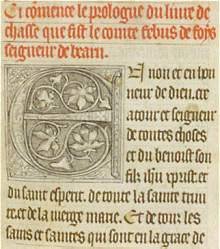 Ci cõmence le prologue du liure de
chasse que fist le comte febus de foys
seigneur de bearn.
E nom et en hon
neur de dieu. cre
atour et seigneur
de toutes choses
et du benoist son
filz ihũ xp̃ist et
du saint esperit. de toute la sainte trini
te. et de la uierge marie. Et de touz les
sains et saintes qui sont en la grace de